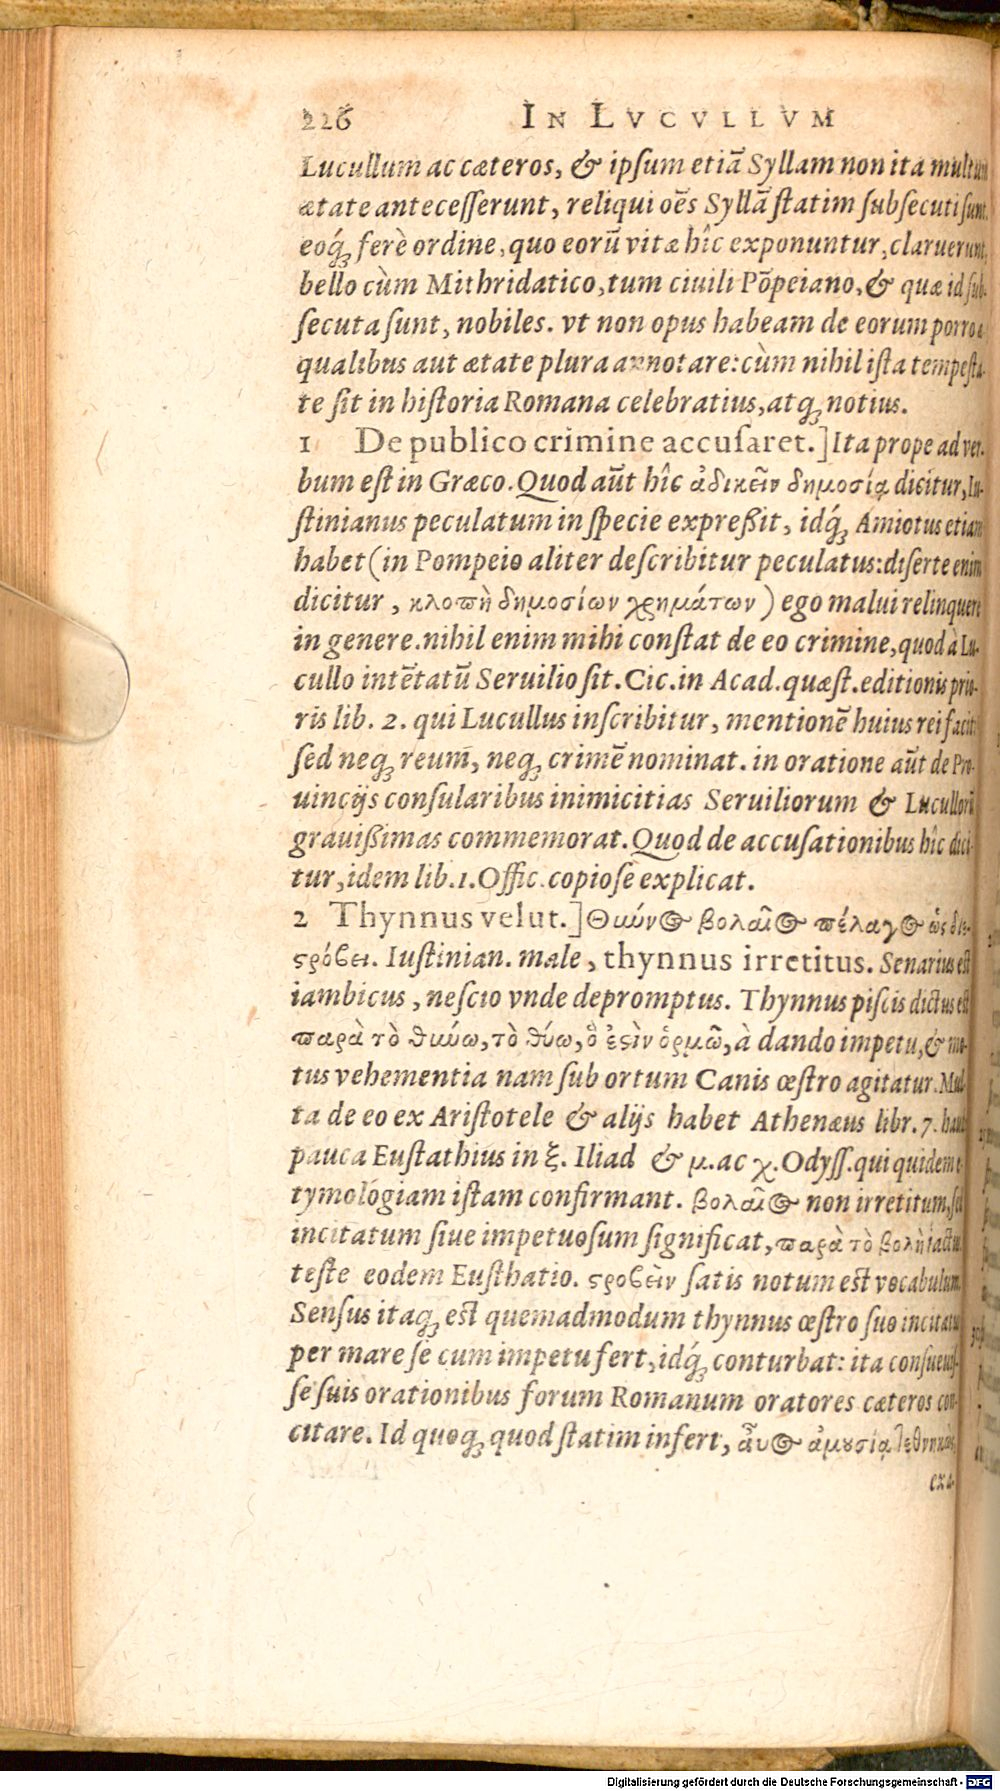 226 IN LVCVLLVM
Lucullum ac cæteros, & ipſum etiā Syllam non ita multum
ætate anteceſſerunt, reliqui oēs Syllā ſtatim ſubſecuti ſunt,
eoq́ꝫ ferè ordine, quo eorū vitæ hîc exponuntur, claruerunt,
bello cùm Mithridatico, tum ciuili Pōpeiano, & quæ id ſub-
ſecuta ſunt, nobiles. vt non opus habeam de eorum porro
qualibus aut ætate plura annotare: cùm nihil iſta tempeſta-
te ſit in hiſtoria Romana celebratius, atqꝫ notius.
1 De publico crimine accuſaret.] Ita prope ad ver-
bum eſt in Græco. Quod aūt hîc ἀδικεῖν δημοσίᾳ dicitur, Iu-
ſtinianus peculatum in ſpecie expreßit, idq́ꝫ Amiotus etiam
habet (in Pompeio aliter deſcribitur peculatus: diſerte enim
dicitur, κλοπὴ δημοσίων χρημάτων) ego malui relinquere
in genere. nihil enim mihi conſtat de eo crimine, quod à Lu-
cullo intētatū Seruilio ſit. Cic. in Acad. quæſt. editionis prio-
ris lib. 2. qui Lucullus inſcribitur, mentionē huius rei facit:
ſed neqꝫ reum, neqꝫ crimē nominat. in oratione aūt de Pro-
uincijs conſularibus inimicitias Seruiliorum & Lucullorū
grauißimas commemorat. Quod de accuſationibus hîc dici-
tur, idem lib. 1. Offic. copioſe explicat.
2 Thynnus velut.] Θύννος βολαῖος πέλαγος ὣς διε-
ϛρόβει. Iuſtinian. male, thynnus irretitus. Senarius eſt
iambicus, neſcio vnde depromptus. Thynnus piſcis dictus eſt
παρὰ τὸ θύνω, τὸ θύω, ὅ ἐϛὶν ὁρμῶ, à dando impetu, & mo-
tus vehementia nam ſub ortum Canis œſtro agitatur. Mul-
ta de eo ex Ariſtotele & alijs habet Athenæus libr. 7. haud
pauca Euſtathius in ξ. Iliad & μ. ac χ. Odyſſ. qui quidem e-
tymologiam iſtam confirmant. βολαῖος non irretitum, ſed
incitatum ſiue impetuoſum ſignificat, παρὰ τὸ βολὴ iactu,
teſte eodem Euſthatio. ϛροβεῖν ſatis notum eſt vocabulum.
Senſus itaqꝫ eſt quemadmodum thynnus œſtro ſuo incitatus
per mare ſe cum impetu fert, idq́ꝫ conturbat: ita conſueuiſ-
ſe ſuis orationibus forum Romanum oratores cæteros con-
citare. Id quoqꝫ quod ſtatim infert, αὖος ἀμουσίᾳ τεθνηκὼς,
exa-
Digitalisierung gefördert durch die Deutsche Forschungsgemeinschaft - DFG